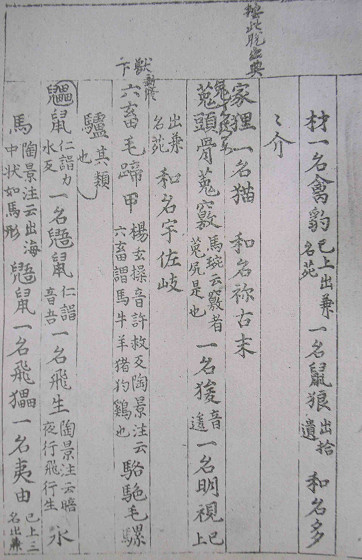 材一名禽豹已上出兼名苑一名鼠狼出拾遺和名多
〻介
家狸一名猫 和名祢古末
菟頭骨菟竅馬琬云竅者菟尻是也一名㕙音逡一名明視已上
出兼名苑 和名宇佐岐
六畜毛蹄甲楊玄操音許救反陶景注云六畜謂馬牛羊猪狗鶏也駱駞毛騾
驢其類也
鼺鼠仁諝力水反一名鼯鼠仁諝音吾一名飛生陶景注云暗夜行飛行生水
馬陶景注云出海中状如馬形鼯鼠一名飛鼺一名夷由已上三名出兼